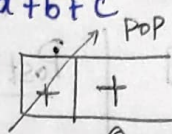 x+b+c
POP
+ +